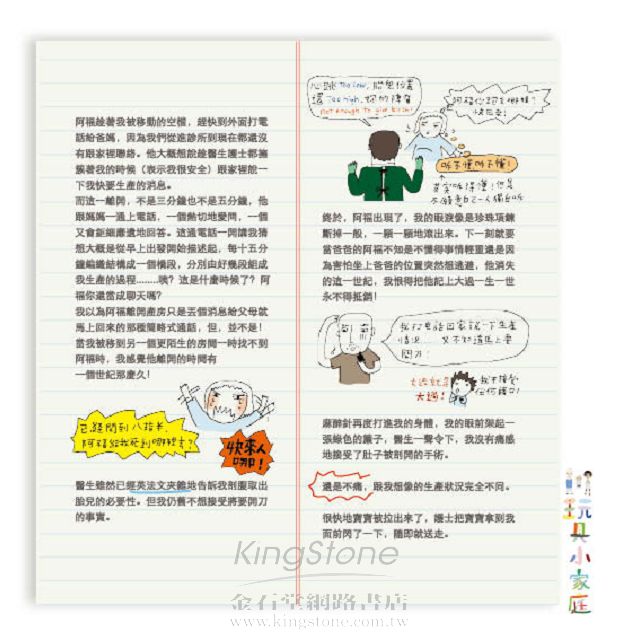 阿福趁著我被移動的空檔，趕快到外面打電
話給爸媽，因為我們從進診所到現在都還沒
有跟家裡聯絡。他大概想說趁醫生護士都簇
擁著我的時候（表示我很安全）跟家裡說一
下我快要生產的消息。
而這一離開，不是三分鐘也不是五分鐘，他
跟媽媽一通上電話，一個熱切地發問，一個
又會鉅細靡遺地回答。這通電話一開講我猜
想大概是從早上出發開始描述起，每十五分
鐘編織結構成一個橋段，分別由好幾段組成
我生產的過程……咦？這是什麼時候了？阿
福你還當成聊天嗎？
我以為阿福離開產房只是丟個消息給父母就
馬上回來的那種簡略式通話，但，並不是！
當我被移到另一個更陌生的房間一時找不到
阿福時，我感覺他離開的時間有
一個世紀那麼久！
已經開到八指半，
阿福給我死到哪裡去？
快來人
啊！
醫生雖然已經英法文夾雜地告訴我剖腹取出
胎兒的必要性。但我仍舊不想接受將要開刀
的事實。
心跳 too low，胎兒位置
還 too high，媽的陣痛
not enough to give birth!
阿福你跑去哪裡？
快回來！
聽不懂聽不懂！
其實聽得懂！但是
不願意自己一人獨自聽
終於，阿福出現了，我的眼淚像是珍珠項鍊
斷掉一般，一顆一顆地滾出來。下一刻就要
當爸爸的阿福不知是不懂得事情輕重還是因
為害怕坐上爸爸的位置突然想逃避，他消失
的這一世紀，我恨得把他記上大過一生一世
永不得抵銷！
我打電話回家說一下生產
情況……又不知道馬上要
開刀！
大過就是
大過！
我不接受
任何藉口！
麻醉針再度打進我的身體，我的眼前架起一
張綠色的簾子，醫生一聲令下，我沒有痛感
地接受了肚子被剖開的手術。
還是不痛，跟我想像的生產狀況完全不同。
很快地寶寶被拉出來了，護士把寶寶拿到我
面前閃了一下，隨即就送走。
玩具小家庭
KingStone
金石堂網路書店
www.kingstone.com.tw